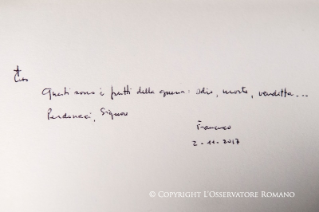 Questi sono i frutti della guerra: odio, morte, vendetta...
Perdonaci, Signore
Francesco
2.11.2017
© COPYRIGHT L'OSSERVATORE ROMANO